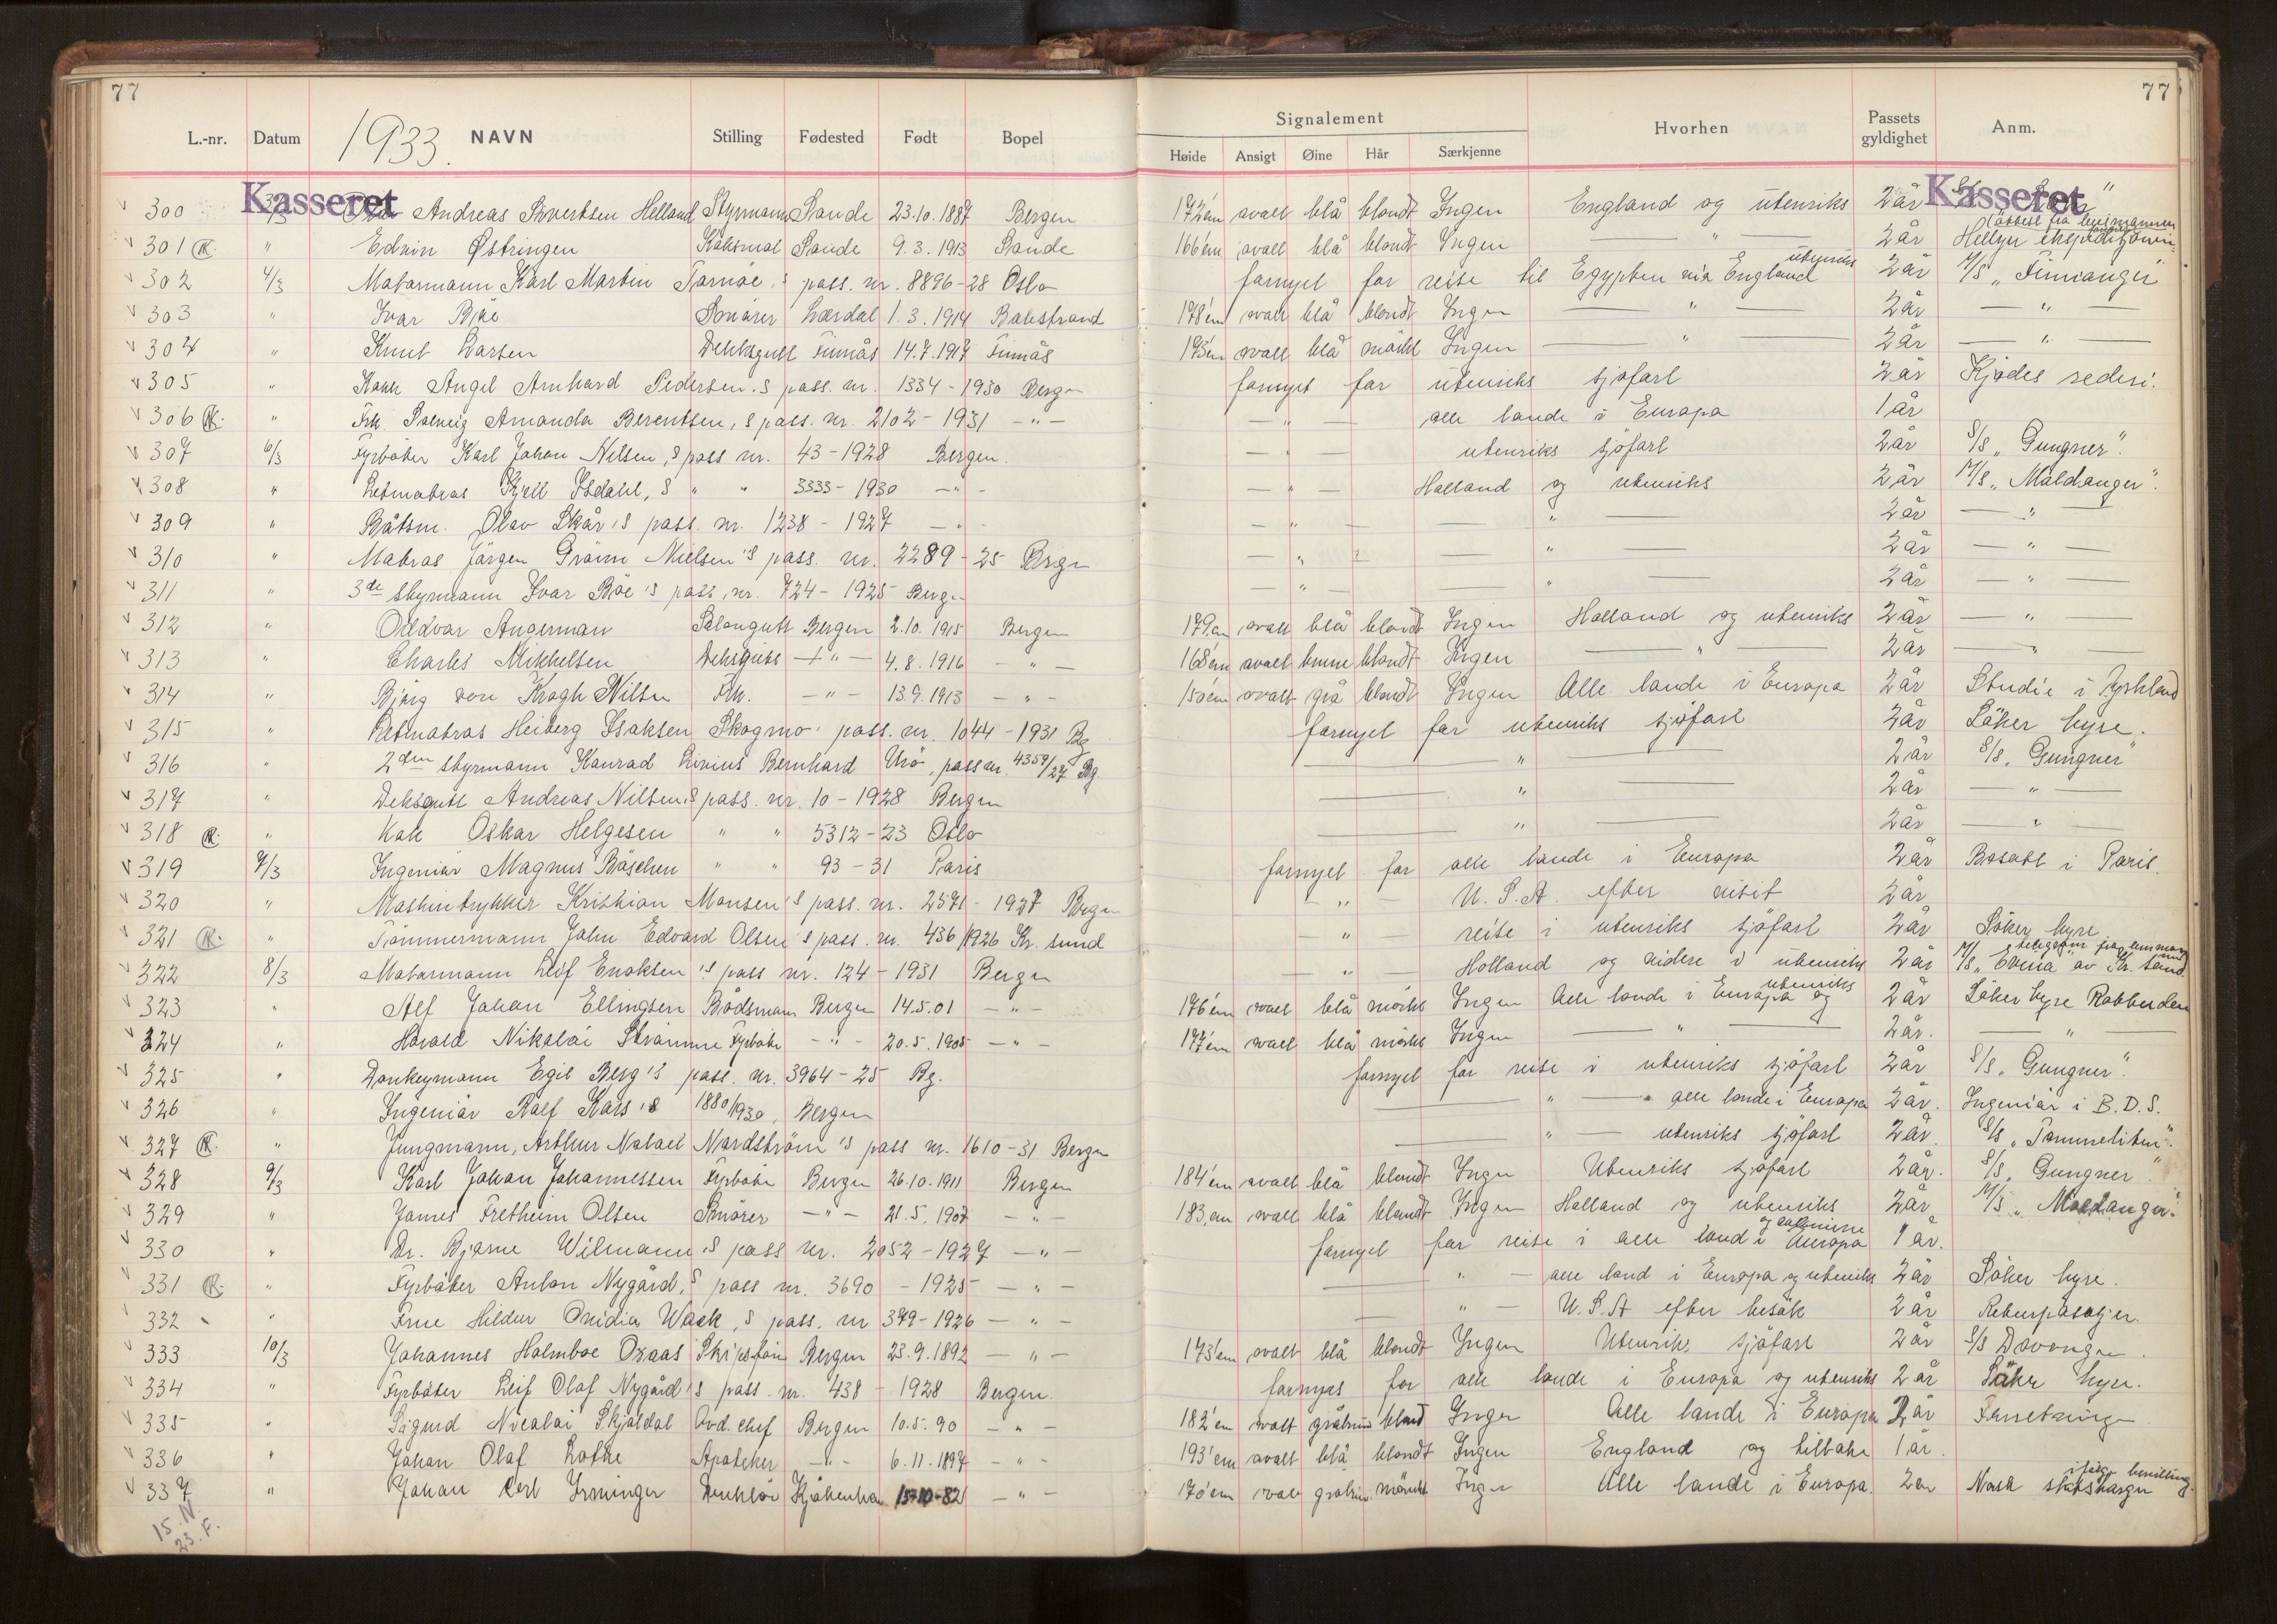 77
77
1933.
L.-nr. Datum NAVN Stilling Fødested Født Bopel
Signalement
Høide Ansigt Øine Hår Særkjenne Hvorhen Passets gyldighet Anm.
Kasseret
Kasseret
300 3/3 Andreas Helland Styrmann Sande 23.10.1887 Bergen 172 cm ovalt blå blondt Ingen England og utenriks 2 år
301 K. " Edvin Østringen Koksmat Sande 9.3.1913 Sande 166 cm ovalt blå blondt Ingen — " — 2 år
302 4/3 Matarmann Karl Martin 's pass. nr. 8896-28 Oslo fornyet for reise til Egypten via England utenriks 2 år M/S „Finnanger"
303 " Ivar Bjøe Smører Lærdal 1.3.1914 Balestrand 178 cm ovalt blå blondt Ingen — " — 2 år — " —
304 " Knut Larsen Dekksgutt Finnås 14.7.1917 Finnås 173 cm ovalt blå mörkt Ingen — " — 2 år — " —
305 " Kokk Angel Arnhard Pedersen's pass. nr. 1334-1930 Bergen fornyet for utenriks sjøfart 2 år Kjødes rederi.
306 K. " Frk. Solveig Amanda Berentsen,s pass. nr. 2102-1931 -"- — " — alle lande i Europa 1 år
307 6/3 Fyrbøter Karl Johan Nilsen,s pass nr. 43-1928 Bergen. — " — utenriks sjöfart 2 år S/S „Gungner".
308 " Letmatros Kjell Isdahl, s " " 3333-1930 -"- — " — Holland og utenriks 2 år M/S „Moldanger".
309 " Båtsm. Olav Skår's pass. nr. 1238-1927 -"- — " — — " — 2 år — " —
310 " Matros Jørgen Grønn Nielsen's pass. nr. 2289-25 Bergen — " — — " — 2 år — " —
311 " 3de styrmann Ivar Böe's pass. nr. 724-1925 Bergen — " — — " — 2 år — " —
312 " Oddvar Angerman Salongutt Bergen 2.10.1915 Bergen 179 cm ovalt blå blondt Ingen Holland og utenriks 2 år — " —
313 " Charles Mikkelsen Deksgutt — " — 4.8.1916 — " — 168 cm ovalt brune blondt Ingen — " — 2 år — " —
314 " Bjørg von Krogh Nilsen Frk. — " — 13.9.1913 — " — 150 cm ovalt grå blondt Ingen Alle lande i Europa 2 år Studie i Tyskland
315 " Letmatros Heiberg Isaksen Skogmo' pass. nr. 1044-1931 Bg fornyet for utenriks sjöfart 2 år Söker hyre.
316 " 2den styrmann Konrad Livius Bernhard Urö, pass nr. 4359/27 Bg. — " — 2 år S/S „Gungner"
317 " Deksgutt Andreas Nilsen,s pass. nr. 10-1928 Bergen — " — 2 år — " —
318 K. " Kok Oskar Helgesen " " 5312-23 Oslo — " — 2 år — " —
319 7/3 Ingeniør Magnus Böschen " " 93-31 Paris fornyet for alle lande i Europa 2 år Bosatt i Paris.
320 " Maskintrykker Kristian Monsen's pass. nr. 2571-1927 Bergen — " — U.S.A. efter visit 2 år
321 K. " Tömmermann John Edvard Olsen's pass. nr. 436/1926 Kr. sund — " — reise i utenriks sjöfart 2 år Söker hyre
322 8/3 Matarmann Leif Enoksen's pass nr. 124-1931 Bergen — " — Holland og videre i utenriks 2 år M/S „ av Kr. sand
323 " Alf Johan Ellingsen Bådsmann Bergen 14.5.01 — " — 176 cm ovalt blå mörkt Ingen Alle lande i Europa og utenriks 2 år Söker hyre Rotterdam
324 " Harald Nikolai Strømme Fyrbøter — " — 20.5.1905 — " — 177 cm ovalt blå mörkt Ingen — " — 2 år. — " —
325 " Donkeymann Egil Berg's pass. nr. 3964-25 Bg. fornyet for reise i utenriks sjöfart 2 år S/S „Gungner".
326 " Ingeniør Ralf Kars's 1880/1930, Bergen — " — alle lande i Europa 2 år. Ingeniør i B.D.S.
327 K. " Jungmann, Arthur Natael Nordström's pass nr. 1610-31 Bergen — " — utenriks sjöfart 2 år. S/S „Tommeliten"
328 9/3 Karl Johan Johannessen Fyrbøter Bergen 26.10.1911 Bergen 184 cm ovalt blå blondt Ingen Utenriks sjöfart 2 år. S/S „Gungner".
329 " James Fretheim Olsen Smører — " — 21.5.1907 — " — 183 cm ovalt blå blondt Ingen Holland og utenriks 2 år M/S „Moldanger".
330 " Dr. Bjarne Wilmann's pass nr. 2052-1927 — " — fornyet for reise i alle land i Europa og koloniene 1 år.
331 K. " Fyrbøter Anton Nygård,s pass nr. 3690-1925 — " — — " — alle land i Europa og utenriks 2 år Söker hyre.
332 " Frue Hildur Ovidia Wack, s pass. nr 379-1926 — " — — " — U.S.A efter besök 2 år Returpasasjer.
333 10/3 Johannes Holmboe Oxaas Skipsfører Bergen 23.9.1892 — " — 173 cm ovalt blå blondt Ingen Utenriks sjöfart 2 år S/S Davanger.
334 " Fyrbøter Leif Olaf Nygård's pass. nr. 438-1928 Bergen. fornyes for alle lande i Europa og utenriks 2 år Söker hyre.
335 " Sigurd Nicolai Skjoldal Avd. chef Bergen 10.5.90 — " — 182 cm ovalt gråbrun blond Ingen Alle lande i Europa 2 år Forretninger
336 " Johan Olaf Lothe Apoteker — " — 6.11.1897 — " — 193 cm ovalt blå blondt Ingen England og tilbake 1 år.
337 " Johan Carl Irminger Direktør Kjøbenhavn 15-10-82 — " — 170 cm oval gråbrun mörkt Ingen Alle lande i Europa. 2 år Norsk statsborger ifölge bevilling
15. N.
23. F.